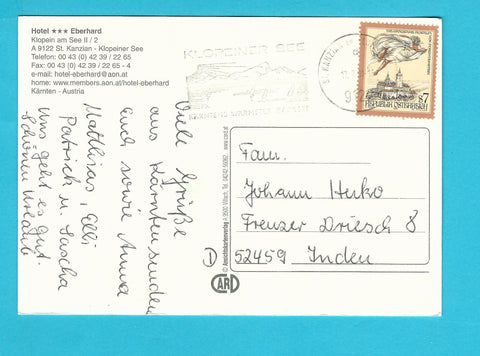 Hotel ★★★ Eberhard
Klopein am See II / 2
A 9122 St. Kanzian - Klopeiner See
Telefon: 00 43 (0) 42 39 / 22 65
Fax: 00 43 (0) 42 39 / 22 65 - 4
e-mail: hotel-eberhard@aon.at
home: www.members.aon.at/hotel-eberhard
Kärnten - Austria
KLOPEINER SEE
KÄRNTENS WÄRMSTER BADESEE
REPUBLIK ÖSTERREICH
S7
Viele Grüße
aus Kärnten senden
euch sowie Anna
Matthias, Elli
Patrick u. Sascha
uns geht es gut.
Schönen Urlaub
© Ansichtskartenverlag A 9500 Villach, Tel. 04242
www.card.at
CARD
Fam.
Johann Huko
Frenzer Driesch 8
52459 Inden
D